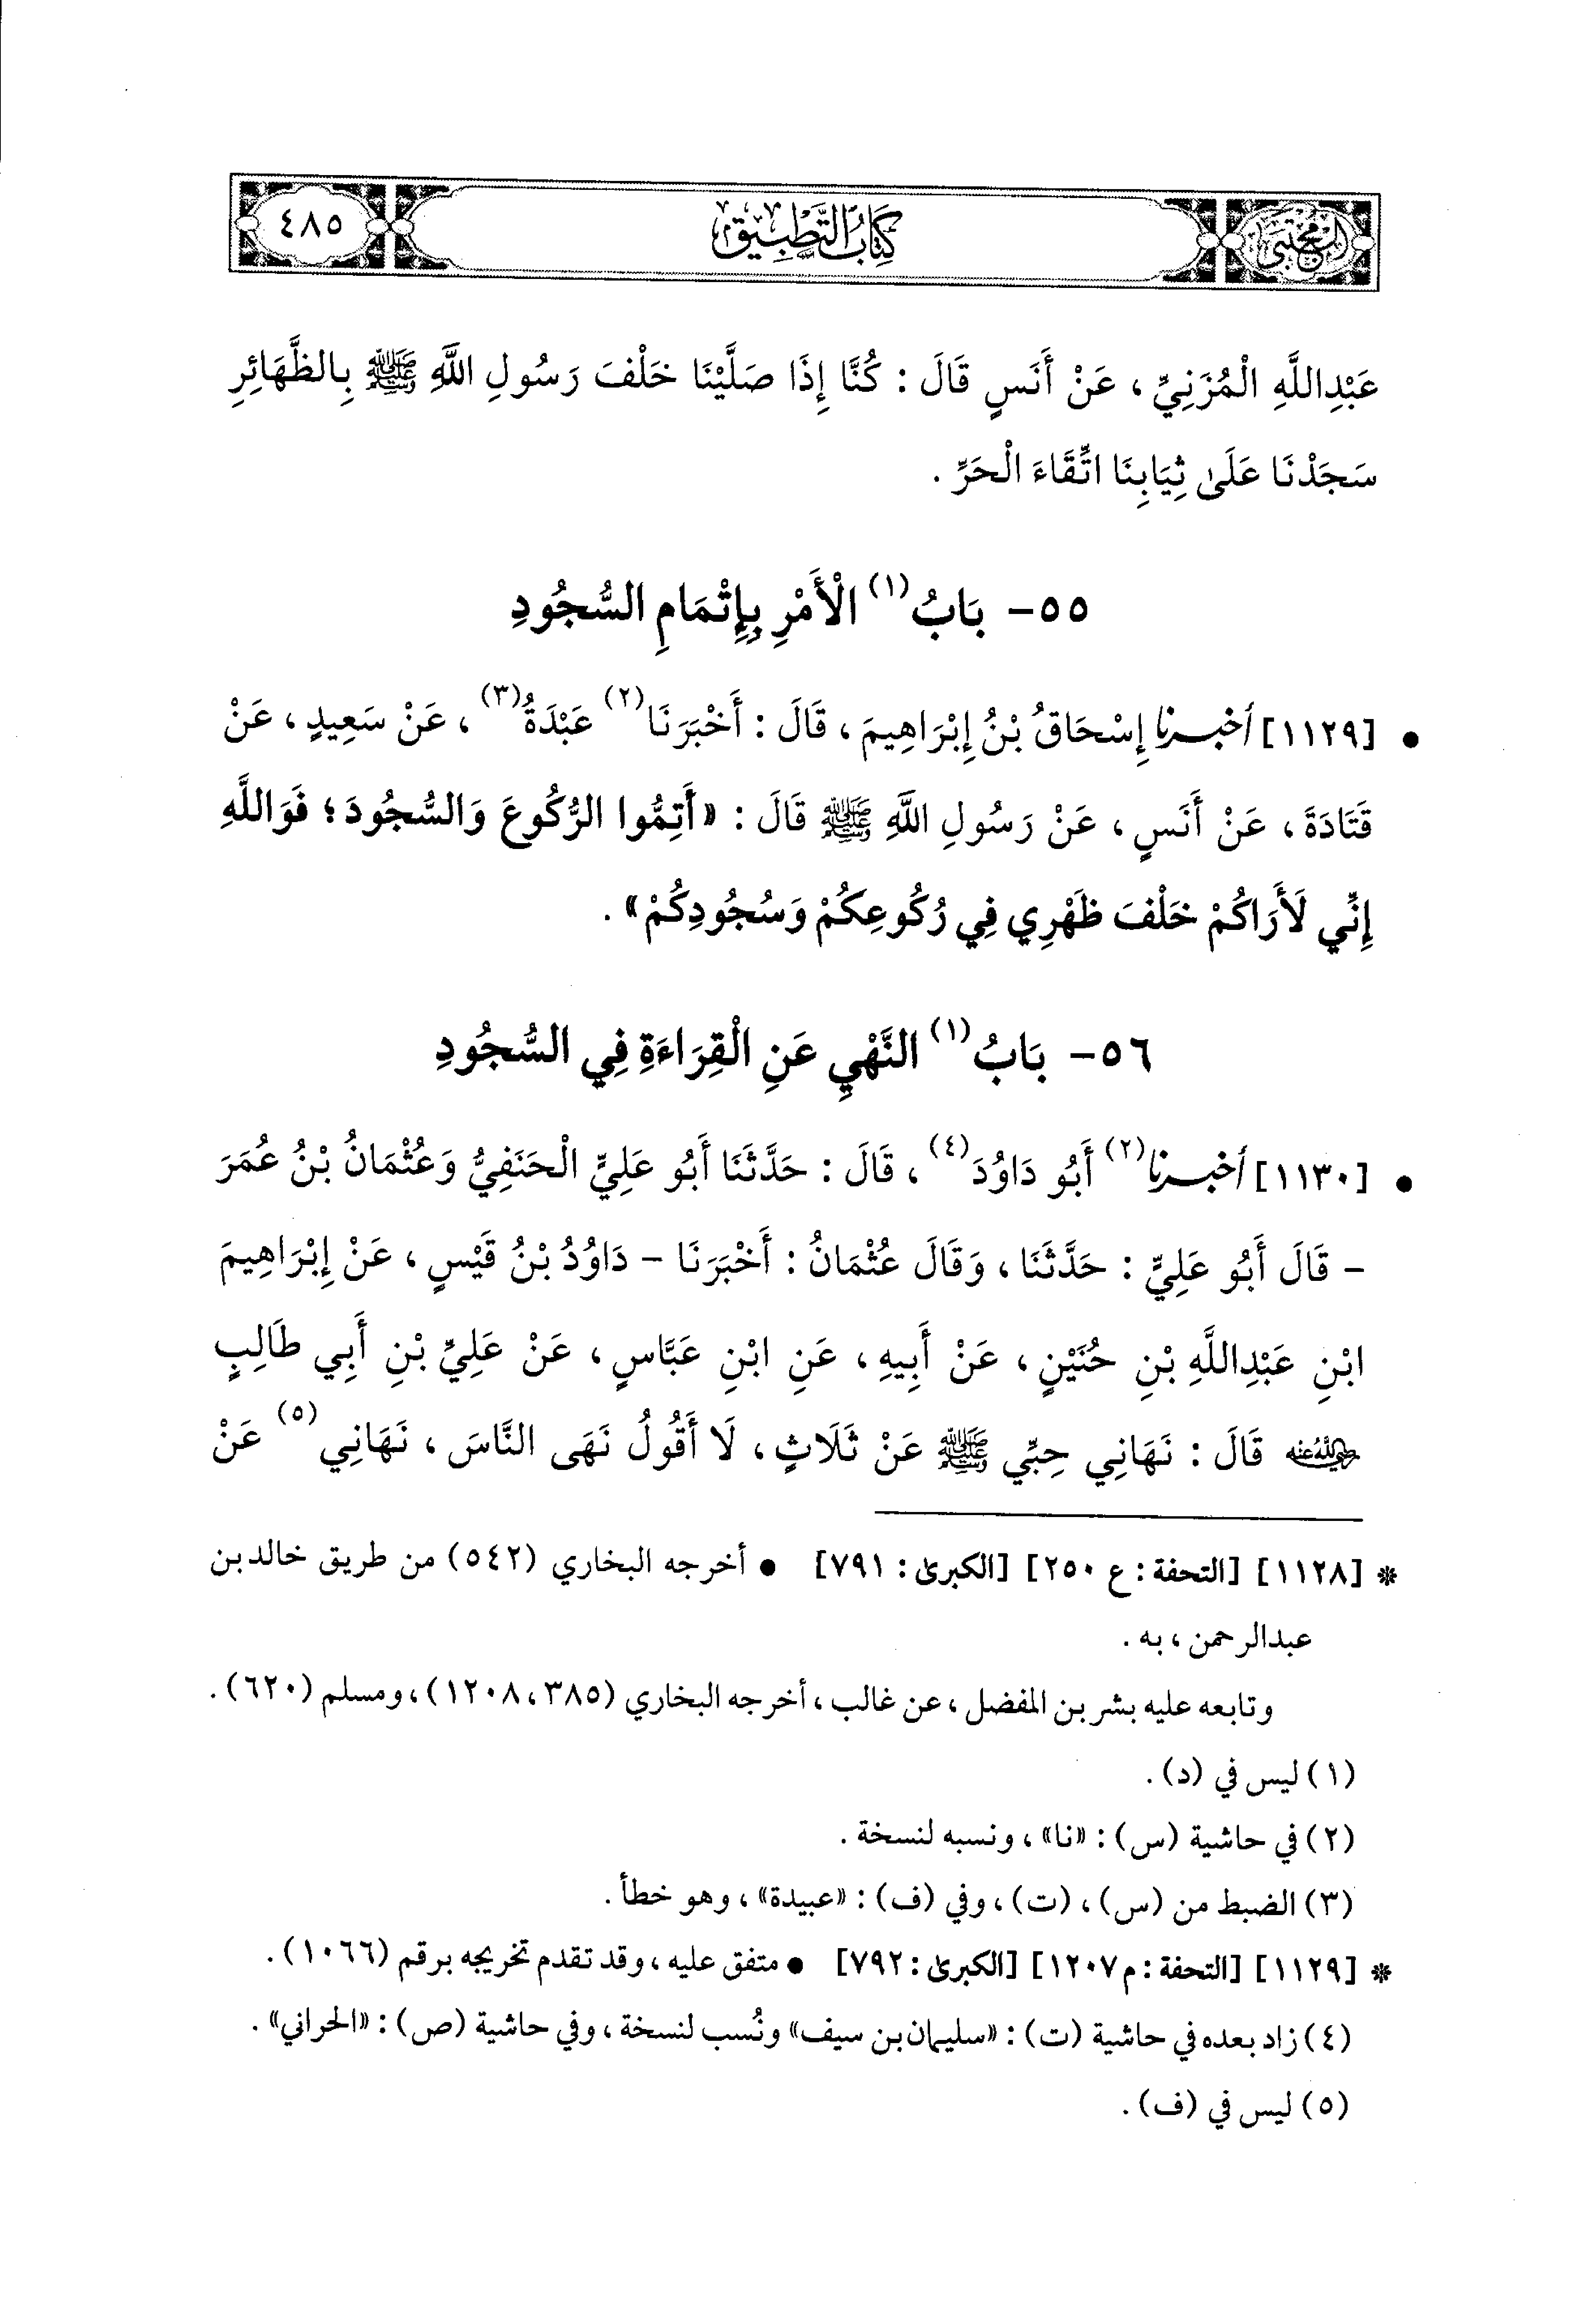 المجتبى
كتاب التطبيق
٤٨٥
عَبْدِاللَّهِ الْمُزَنِيِّ ، عَنْ أَنَسٍ قَالَ : كُنَّا إِذَا صَلَّيْنَا خَلْفَ رَسُولِ اللَّهِ ﷺ بِالظَّهَائِرِ
سَجَدْنَا عَلَىٰ ثِيَابِنَا اتِّقَاءَ الْحَرِّ .
٥٥- بَابُ(١) الْأَمْرِ بِإِتْمَامِ السُّجُودِ
• [١١٢٩] أخبرنا إِسْحَاقُ بْنُ إِبْرَاهِيمَ ، قَالَ : أَخْبَرَنَا(٢) عَبْدَةُ(٣) ، عَنْ سَعِيدٍ ، عَنْ
قَتَادَةَ ، عَنْ أَنَسٍ ، عَنْ رَسُولِ اللَّهِ ﷺ قَالَ : «أَتِمُّوا الرُّكُوعَ وَالسُّجُودَ ؛ فَوَاللَّهِ
إِنِّي لَأَرَاكُمْ خَلْفَ ظَهْرِي فِي رُكُوعِكُمْ وَسُجُودِكُمْ» .
٥٦- بَابُ(١) النَّهْيِ عَنِ الْقِرَاءَةِ فِي السُّجُودِ
• [١١٣٠] أخبرنا(٢) أَبُو دَاوُدَ(٤) ، قَالَ : حَدَّثَنَا أَبُو عَلِيٍّ الْحَنَفِيُّ وَعُثْمَانُ بْنُ عُمَرَ
- قَالَ أَبُو عَلِيٍّ : حَدَّثَنَا ، وَقَالَ عُثْمَانُ : أَخْبَرَنَا - دَاوُدُ بْنُ قَيْسٍ ، عَنْ إِبْرَاهِيمَ
ابْنِ عَبْدِاللَّهِ بْنِ حُنَيْنٍ ، عَنْ أَبِيهِ ، عَنِ ابْنِ عَبَّاسٍ ، عَنْ عَلِيِّ بْنِ أَبِي طَالِبٍ
رضي الله عنه قَالَ : نَهَانِي حِبِّي ﷺ عَنْ ثَلَاثٍ ، لَا أَقُولُ نَهَى النَّاسَ ، نَهَانِي(٥) عَنْ
* [١١٢٨] [التحفة : ع ٢٥٠] [الكبرىٰ : ٧٩١] • أخرجه البخاري (٥٤٢) من طريق خالد بن
عبدالرحمن ، به .
وتابعه عليه بشر بن المفضل ، عن غالب ، أخرجه البخاري (٣٨٥ ، ١٢٠٨) ، ومسلم (٦٢٠) .
(١) ليس في (د) .
(٢) في حاشية (س) : «نا» ، ونسبه لنسخة .
(٣) الضبط من (س) ، (ت) ، وفي (ف) : «عبيدة» ، وهو خطأ .
* [١١٢٩] [التحفة : م ١٢٠٧] [الكبرىٰ : ٧٩٢] • متفق عليه ، وقد تقدم تخريجه برقم (١٠٦٦) .
(٤) زاد بعده في حاشية (ت) : «سليمان بن سيف» ونُسب لنسخة ، وفي حاشية (ص) : «الحراني» .
(٥) ليس في (ف) .